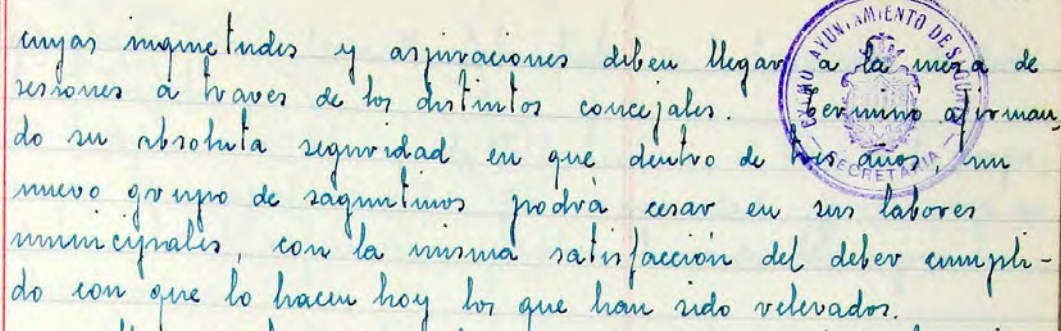 cuyas inquietudes y aspiraciones deben llegar a la mesa de
sesiones a traves de los distintos concejales. Termino afirman
do su absoluta seguridad en que dentro de tres años, un
nuevo grupo de saguntinos podrá cesar en sus labores
municipales, con la misma satisfacción del deber cumpli-
do con que lo hacen hoy los que han sido relevados.
EXCMO AYUNTAMIENTO DE SAGUNTO
SECRETARIA